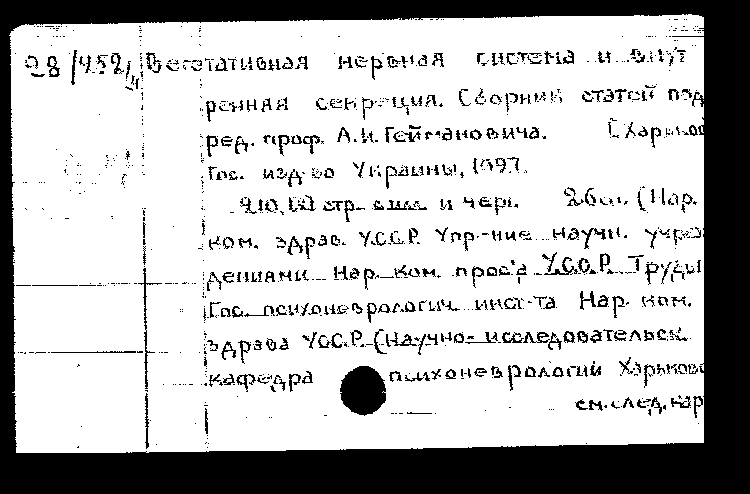 28/4524 Вегетативная нервная система и внут
ренняя секреция. Сборник статей под
ред. проф. А.И. Геймановича. [Харьков
Гос. изд-во Украины, 1927.
210, стр. с илл. и черт. 26см. (Нар.
ком. здрав. У.С.С.Р. Упр-ние научн. учреж
дениями Нар. ком. просв'а У.С.С.Р. Труды
Гос. психоневрологич. инст-та Нар. ком.
здрава УССР. (Научно-исследовательск.
кафедра психоневрологии Харьковс
см. след. кар